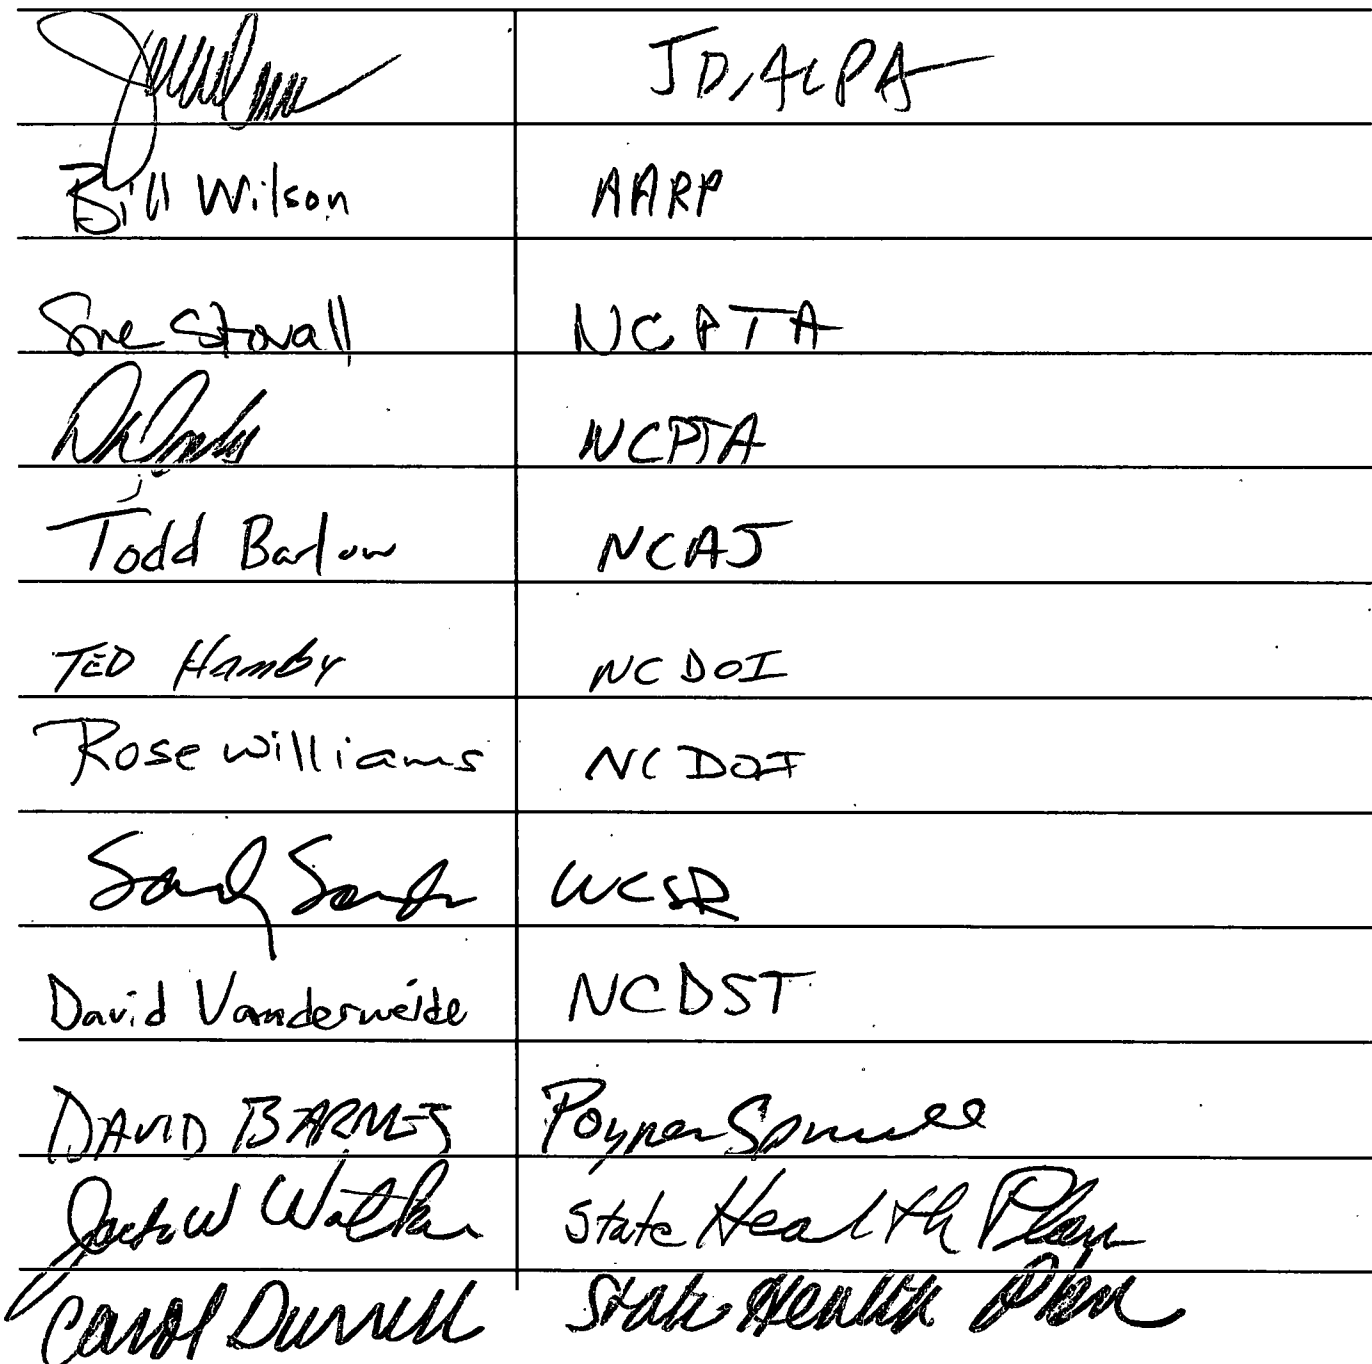 JD, ALPA
Bill Wilson AARP
Sue Stovall NCPTA
NCPTA
Todd Barlow NCAJ
TED Hamby NC DOI
Rose Williams NC DOI
Sandy Sands WCSR
David Vanderweide NCDST
DAVID BARNES Poyner Spruill
Jack W Walker State Health Plan
Carol Durrell State Health Plan